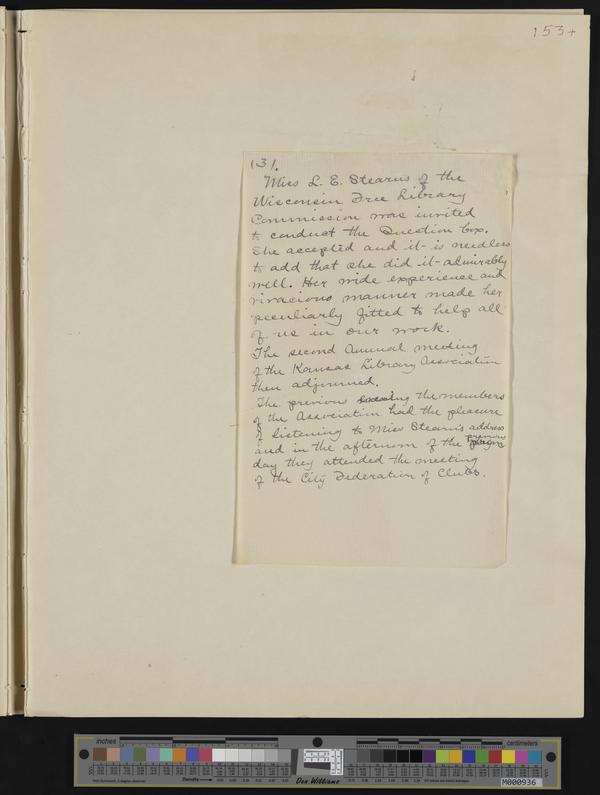 153+
131.
Miss L. E. Stearns of the
Wisconsin Free Library
Commission was invited
to conduct the Question box.
She accepted and it is needless
to add that she did it admirably
well. Her wide experience and
vivacious manner made her
peculiarly fitted to help all
of us in our work.
The second Annual meeting
of the Kansas Library Association
then adjourned.
The previous evening the members
of the Association had the pleasure
of listening to Miss Stearns address
and in the afternoon of the previous
day they attended the meeting
of the City Federation of Clubs.
inches
centimeters
Density
Don Williams
M000936